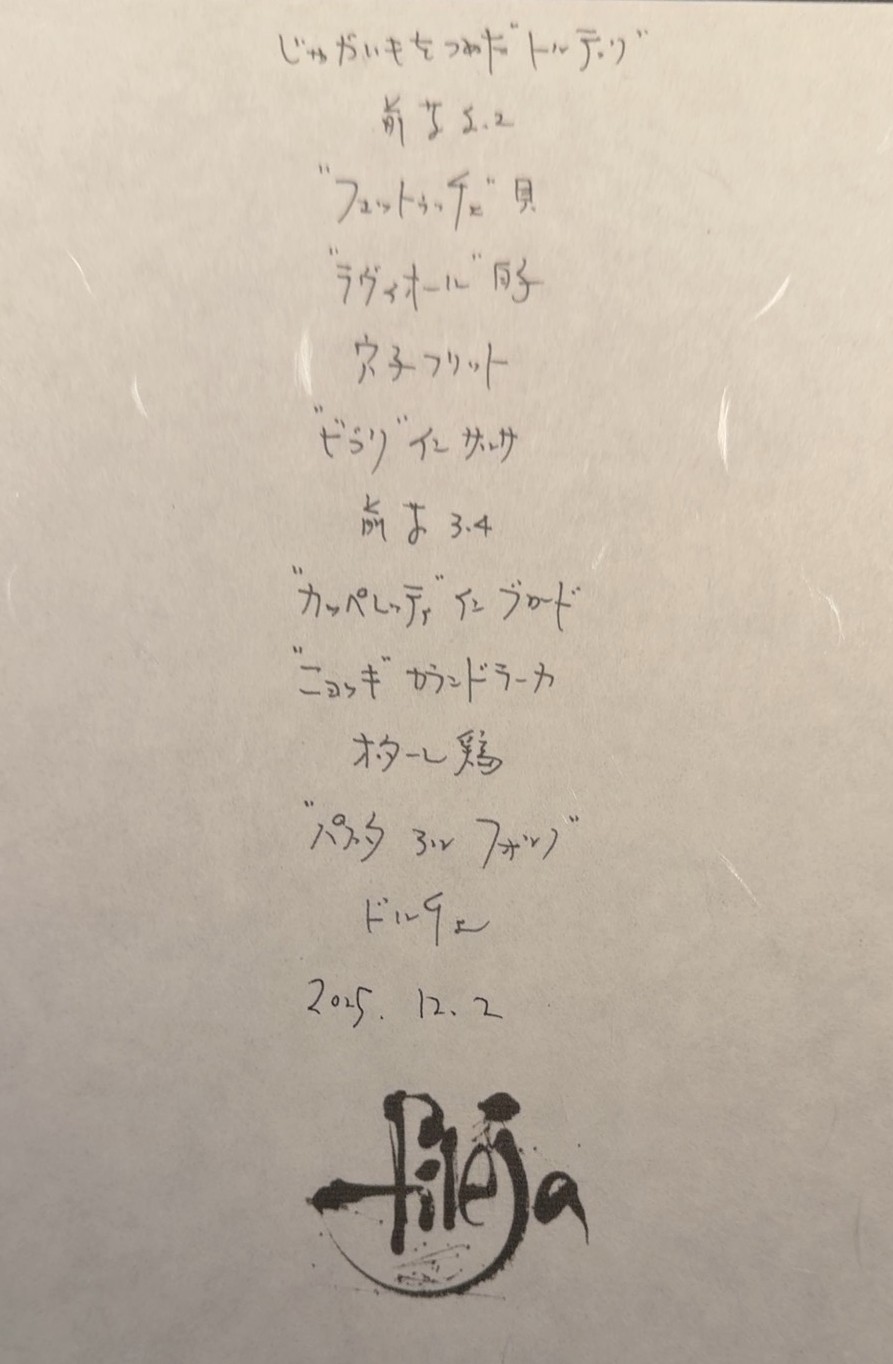 じゃがいもをつめた"トルテッリ"
前菜 1.2
"フェットゥッチェ" 貝
"ラヴィオール" 白子
穴子フリット
"ビゴリ" イン サルサ
前菜 3.4
"カッペレッティ" イン ブロード
"ニョッキ" カランドラーカ
鶏
"パスタ アル フォルノ"
ドルチェ
2025. 12. 2
Pileja